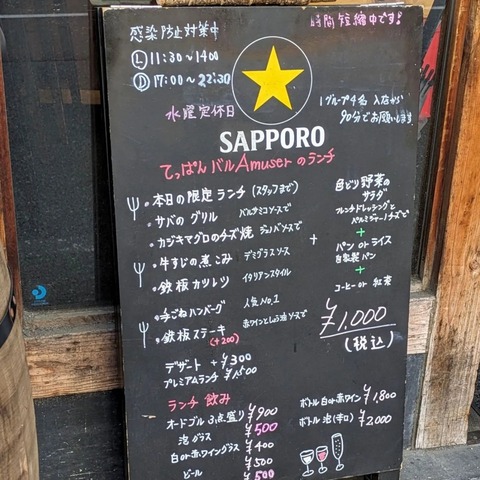 感染防止対策中
時間短縮中です!
Ⓛ 11:30～1400
Ⓓ 17:00～22:30
水曜定休日
1グループ4名 入店から
90分でお願いします
SAPPORO
てっぱんバルAmuserのランチ
・本日の限定ランチ (スタッフまで)
・サバのグリル バルサミコソースで
・カジキマグロのチーズ焼 ジェノバソースで
・牛すじの煮こみ デミグラスソース
・鉄板カツレツ イタリアンスタイル
・手ごねハンバーグ 人気No.1
・鉄板ステーキ (+200) 赤ワインとしょう油ソースで
+
色どり野菜の
サラダ
フレンチドレッシングと
パルミジャーノチーズで
+
パン or ライス
自家製パン
+
コーヒー or 紅茶
¥1,000
(税込)
デザート +¥300
プレミアムランチ ¥1,500
ランチ飲み
オードブル3点盛り ¥900
泡グラス ¥500
白or赤ワイングラス ¥400
¥500
ビール ¥500
ボトル白or赤ワイン ¥1,800
ボトル泡(辛口) ¥2,000